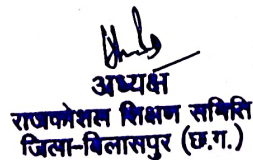 अध्यक्ष
राजकौशल शिक्षण समिति
जिला-बिलासपुर (छ.ग.)